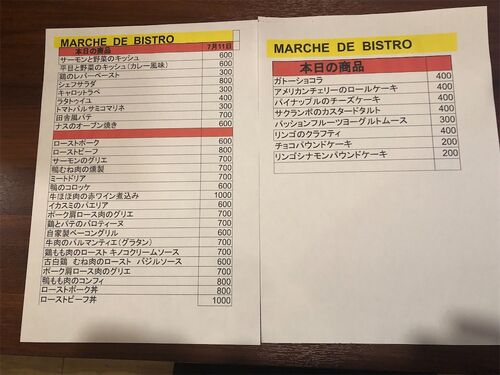 MARCHE DE BISTRO
本日の商品 7月11日
サーモンと野菜のキッシュ 600
平目と野菜のキッシュ(カレー風味) 600
鶏のレバーペースト 300
シェフサラダ 800
キャロットラペ 300
ラタトゥイユ 400
トマトバルサミコマリネ 300
田舎風パテ 700
ナスのオーブン焼き 600
ローストポーク 600
ローストビーフ 800
サーモンのグリエ 700
鴨むね肉の燻製 700
ミートドリア 700
鴨のコロッケ 600
牛ほほ肉の赤ワイン煮込み 1000
イカスミのパエリア 600
ポーク肩ロース肉のグリエ 700
鶏とパテのパロティーヌ 700
自家製ベーコングリル 600
牛肉のパルマンティエ(グラタン) 700
鶏もも肉のロースト キノコクリームソース 700
古白鶏 むね肉のロースト バジルソース 600
ポーク肩ロース肉のグリエ 700
鴨もも肉のコンフィ 800
ローストポーク丼 800
ローストビーフ丼 1000
MARCHE DE BISTRO
本日の商品
ガトーショコラ 400
アメリカンチェリーのロールケーキ 400
パイナップルのチーズケーキ 400
サクランボのカスタードタルト 400
パッションフルーツヨーグルトムース 300
リンゴのクラフティ 400
チョコパウンドケーキ 200
リンゴシナモンパウンドケーキ 200